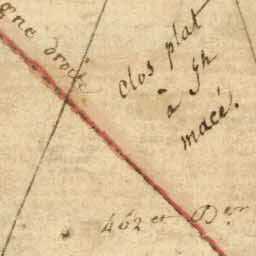 gne droite
clos plat
à Jh
macé.
462 et D.er